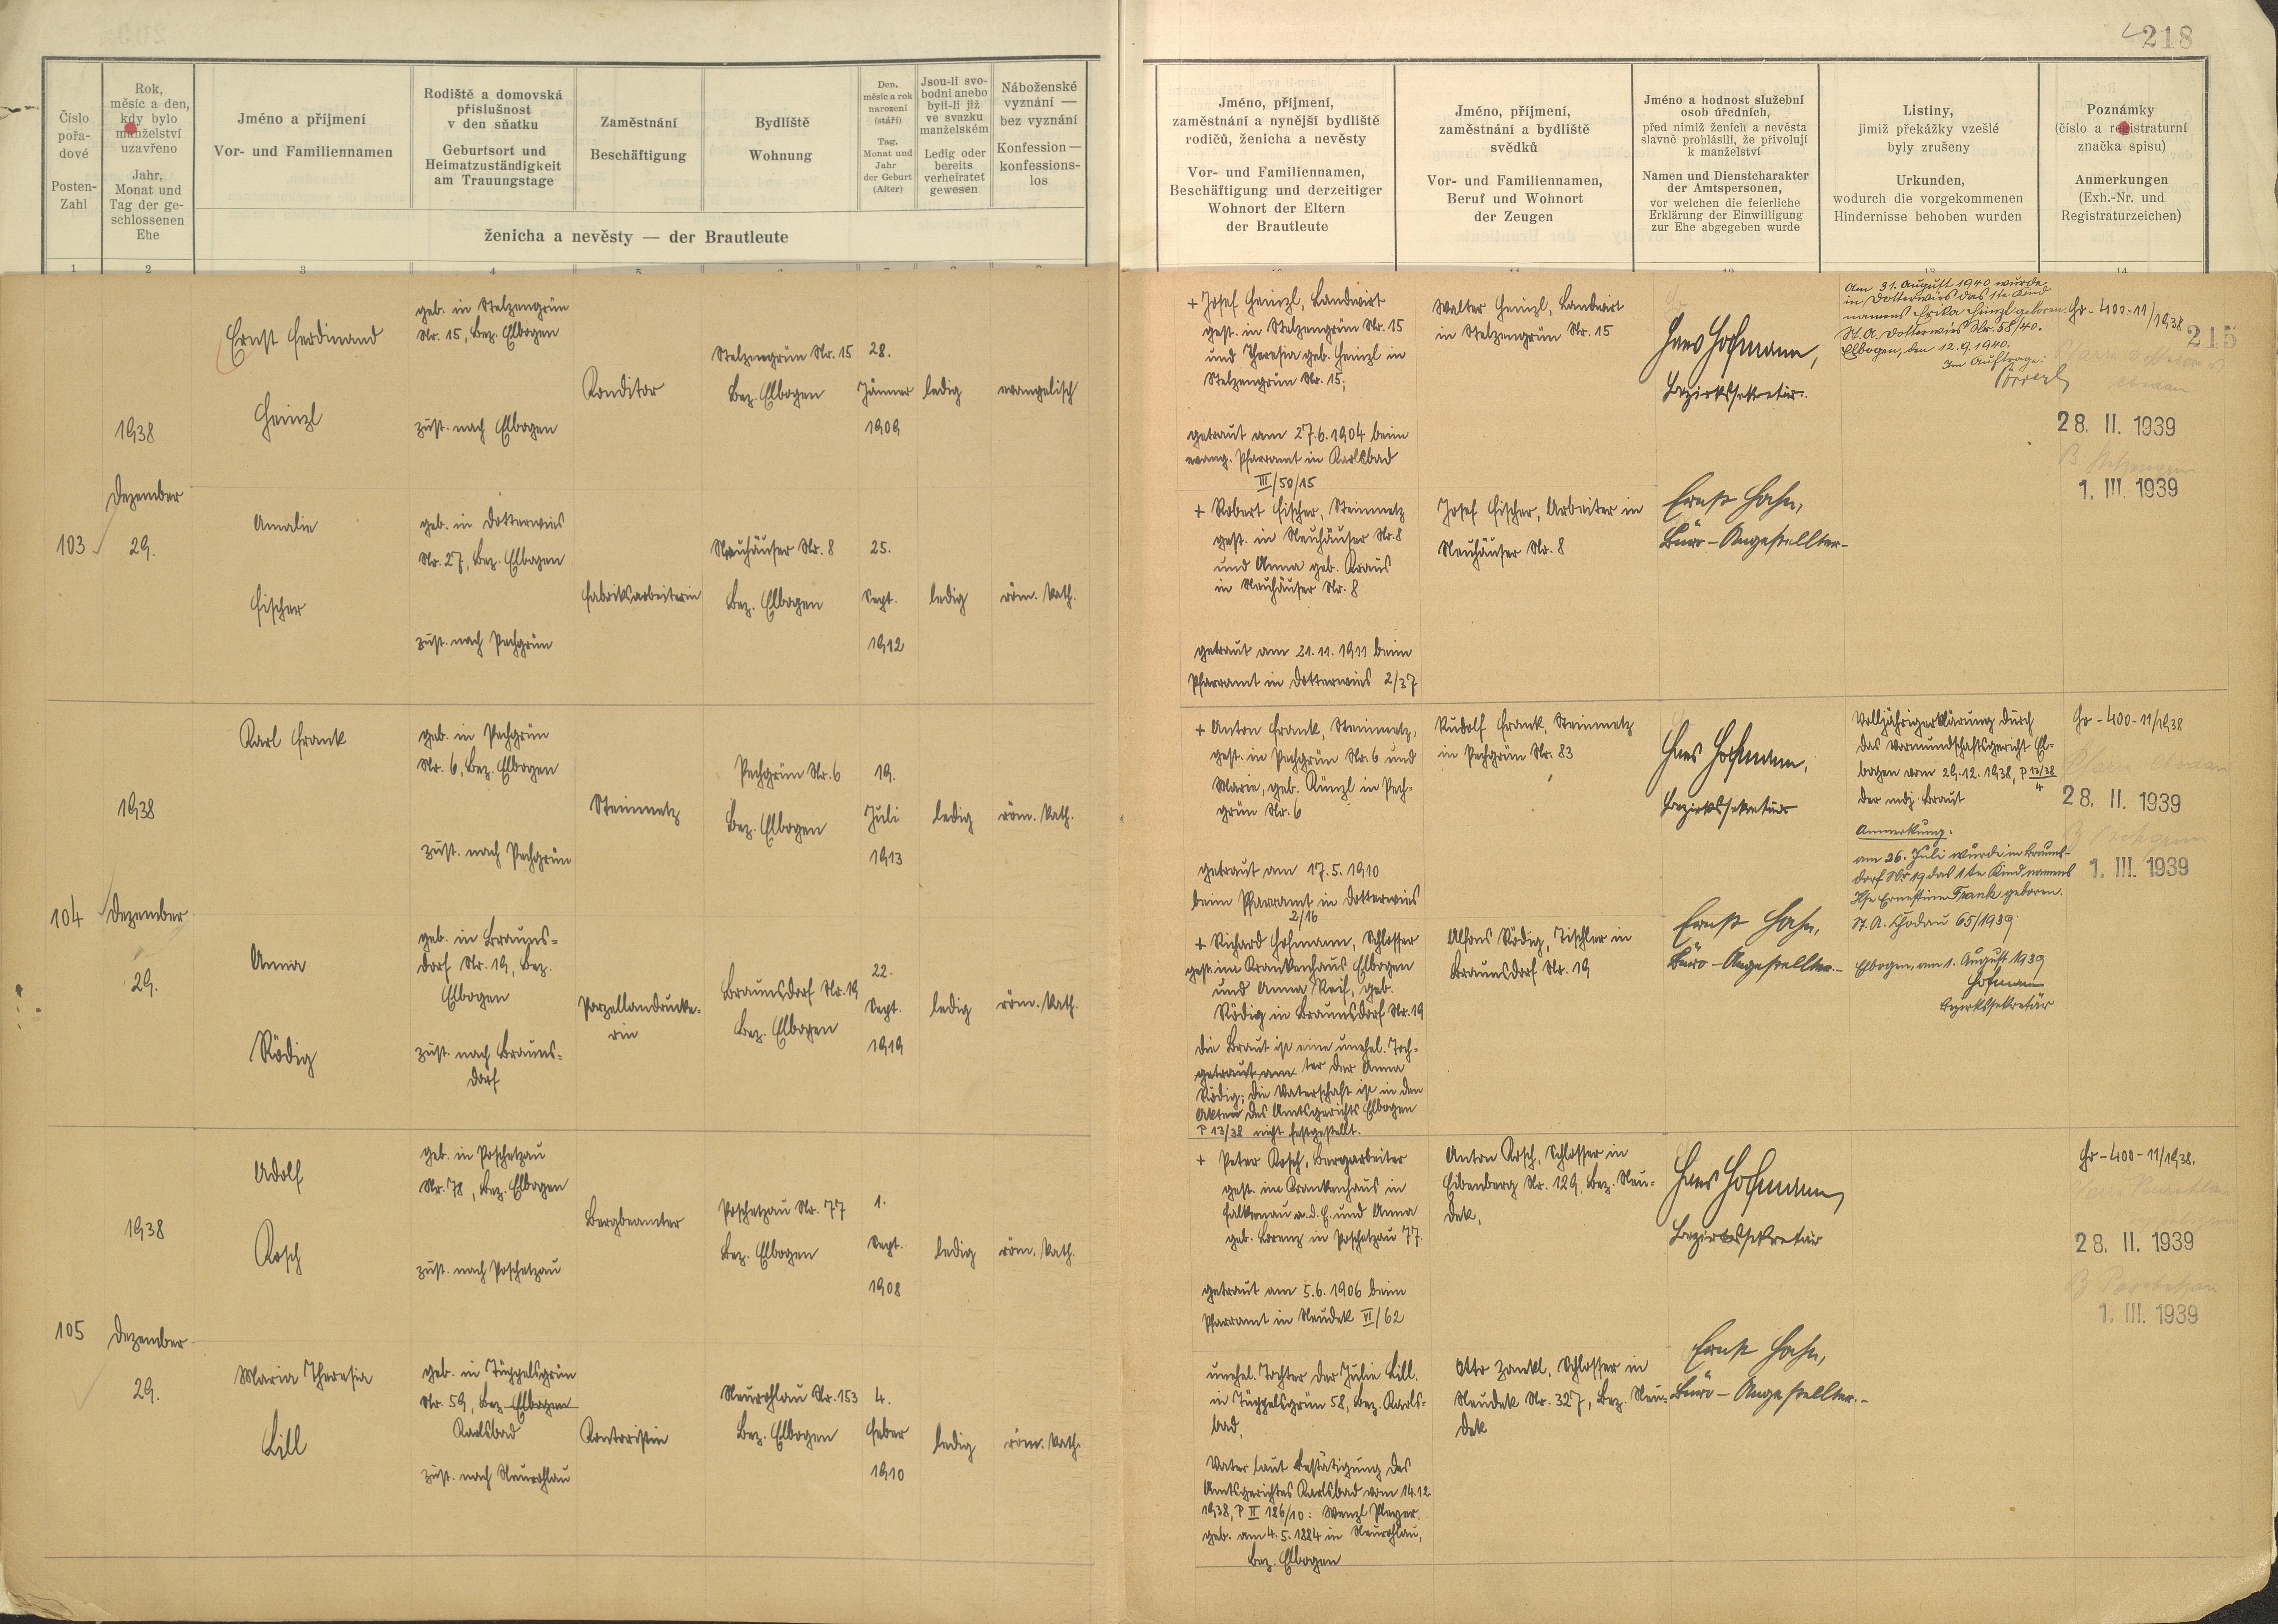 218
Číslo
pořa-
dové
Posten-
Zahl
Rok,
měsíc a den,
kdy bylo
manželství
uzavřeno
Jahr,
Monat und
Tag der ge-
schlossenen
Ehe
Jméno a příjmení
Vor- und Familiennamen
Rodiště a domovská
příslušnost
v den sňatku
Geburtsort und
Heimatzuständigkeit
am Trauungstage
Zaměstnání
Beschäftigung
Bydliště
Wohnung
Den,
měsíc a rok
narození
(stáří)
Tag,
Monat und
Jahr
der Geburt
(Alter)
Jsou-li svo-
bodni anebo
byli-li již
ve svazku
manželském
Ledig oder
bereits
verheiratet
gewesen
Náboženské
vyznání —
bez vyznání
Konfession —
konfessions-
los
ženicha a nevěsty — der Brautleute
Jméno, příjmení,
zaměstnání a nynější bydliště
rodičů, ženicha a nevěsty
Vor- und Familiennamen,
Beschäftigung und derzeitiger
Wohnort der Eltern
der Brautleute
Jméno, příjmení,
zaměstnání a bydliště
svědků
Vor- und Familiennamen,
Beruf und Wohnort
der Zeugen
Jméno a hodnost služební
osob úředních,
před nimiž ženich a nevěsta
slavně prohlásili, že přivolují
k manželství
Namen und Dienstcharakter
der Amtspersonen,
vor welchen die feierliche
Erklärung der Einwilligung
zur Ehe abgegeben wurde
Listiny,
jimiž překážky vzešlé
byly zrušeny
Urkunden,
wodurch die vorgekommenen
Hindernisse behoben wurden
Poznámky
(číslo a registraturní
značka spisu)
Anmerkungen
(Exh.-Nr. und
Registraturzeichen)
1 2 3 4
103
1938
Dezember
29.
Ernst Ferdinand
Heinzl
geb. in Stelzengrün
Nr. 15, Bez. Elbogen
zust. nach Elbogen
Konditor
Stelzengrün Nr. 15
Bez. Elbogen
28.
Jänner
1909
ledig
evangelisch
+ Josef Heinzl, Landwirt
gest. in Stelzengrün Nr. 15
und Theresia geb. Heinzl in
Stelzengrün Nr. 15;
getraut am 27.6.1904 beim
evang. Pfarramt in Karlsbad
III/50/15
Walter Heinzl, Landwirt
in Stelzengrün Nr. 15
Hans Hofmann,
Bezirkssekretär.
Am 31. August 1940 wurde
in Dotterwies das 1te Kind
namens Erika Heinzl geboren.
St. A. Dotterwies Nr. 58/40.
Elbogen, den 12.9.1940.
Im Auftrage:
Gr-400-11/1938
215
28. II. 1939
1. III. 1939
Amalie
Fischer
geb. in Dotterwies
Nr. 27, Bez. Elbogen
zust. nach Pechgrün
Fabriksarbeiterin
Neuhäuser Nr. 8
Bez. Elbogen
25.
Sept.
1912
ledig
röm. kath.
+ Robert Fischer, Steinmetz
gest. in Neuhäuser Nr. 8
und Anna geb. Kraus
in Neuhäuser Nr. 8
getraut am 21.11.1911 beim
Pfarramt in Dotterwies 2/37
Josef Fischer, Arbeiter in
Neuhäuser Nr. 8
Ernst Hahn,
Büro-Angestellter-
104
1938
Dezember
29.
Karl Frank
geb. in Pechgrün
Nr. 6, Bez. Elbogen
zust. nach Pechgrün
Steinmetz
Pechgrün Nr. 6
Bez. Elbogen
19.
Juli
1913
ledig
röm. kath.
+ Anton Frank, Steinmetz,
gest. in Pechgrün Nr. 6 und
Marie, geb. Künzl in Pech-
grün Nr. 6
getraut am 17.5.1910
beim Pfarramt in Dotterwies
2/16
Rudolf Frank, Steinmetz
in Pechgrün Nr. 83
Hans Hofmann,
Bezirkssekretär
Volljährigerklärung durch
das Vormundschaftsgericht El-
bogen vom 29.12.1938, P 13/38
4
der mdj. Braut
Anmerkung:
am 26. Juli wurde in Brauns-
dorf Nr 19 das 1te Kind namens
Ilse Ernestine Frank geboren.
St. A. Chodau 65/1939
Elbogen, am 1. August 1939
Hofmann
Bezirkssekretär
Gr-400-11/1938
Pfarre Chodau
28. II. 1939
B. Pechgrün
1. III. 1939
Anna
Rödig
geb. in Brauns-
dorf Nr. 19, Bez.
Elbogen
zust. nach Brauns-
dorf
Porzellandrucke-
rin
Braunsdorf Nr. 19
Bez. Elbogen
22.
Sept.
1919
ledig
röm. kath.
+ Richard Hofmann, Schlosser
gest. im Krankenhaus Elbogen
und Anna Reif, geb.
Rödig in Braunsdorf Nr. 19
Die Braut ist eine unehel. Toch-
getraut am ter der Anna
Rödig; die Vaterschaft ist in den
Akten des Amtsgerichts Elbogen
P 13/38 nicht festgestellt.
Alfons Rödig, Tischler in
Braunsdorf Nr. 19
Ernst Hahn,
Büro-Angestellter.-
105
1938
Dezember
29.
Adolf
Rosch
geb. in Poschetzau
Nr. 78, Bez. Elbogen
zust. nach Poschetzau
Bergbeamter
Poschetzau Nr. 77
Bez. Elbogen
1.
Sept.
1908
ledig
röm. kath.
+ Peter Rosch, Bergarbeiter
gest. im Krankenhaus in
Falkenau a.d.E. und Anna
geb. Lorenz in Poschetzau 77.
getraut am 5.6.1906 beim
Pfarramt in Neudek VI/62
Anton Rosch, Schlosser in
Eibenberg Nr. 129, Bez. Neu-
dek,
Hans Hofmann
Bezirkssekretär
Gr-400-11/1938.
28. II. 1939
B. Poschetzau
1. III. 1939
Maria Theresia
Lill
geb. in Tüppelsgrün
Nr. 59, Bez. Elbogen
Karlsbad
zust. nach Neurohlau
Kontoristin
Neurohlau Nr. 153
Bez. Elbogen
4.
Feber
1910
ledig
röm. kath.
unehel. Tochter der Julie Lill.
in Tüppelsgrün 58, Bez. Karls-
bad,
Vater laut Bestätigung des
Amtsgerichtes Karlsbad vom 14.12.
1938, P II 186/10: Wenzl Pleyer
geb. am 4.5.1884 in Neurohlau,
Bez. Elbogen
Otto Zankl, Schlosser in
Neudek Nr. 327, Bez. Neu-
dek
Ernst Hahn,
Büro-Angestellter.-